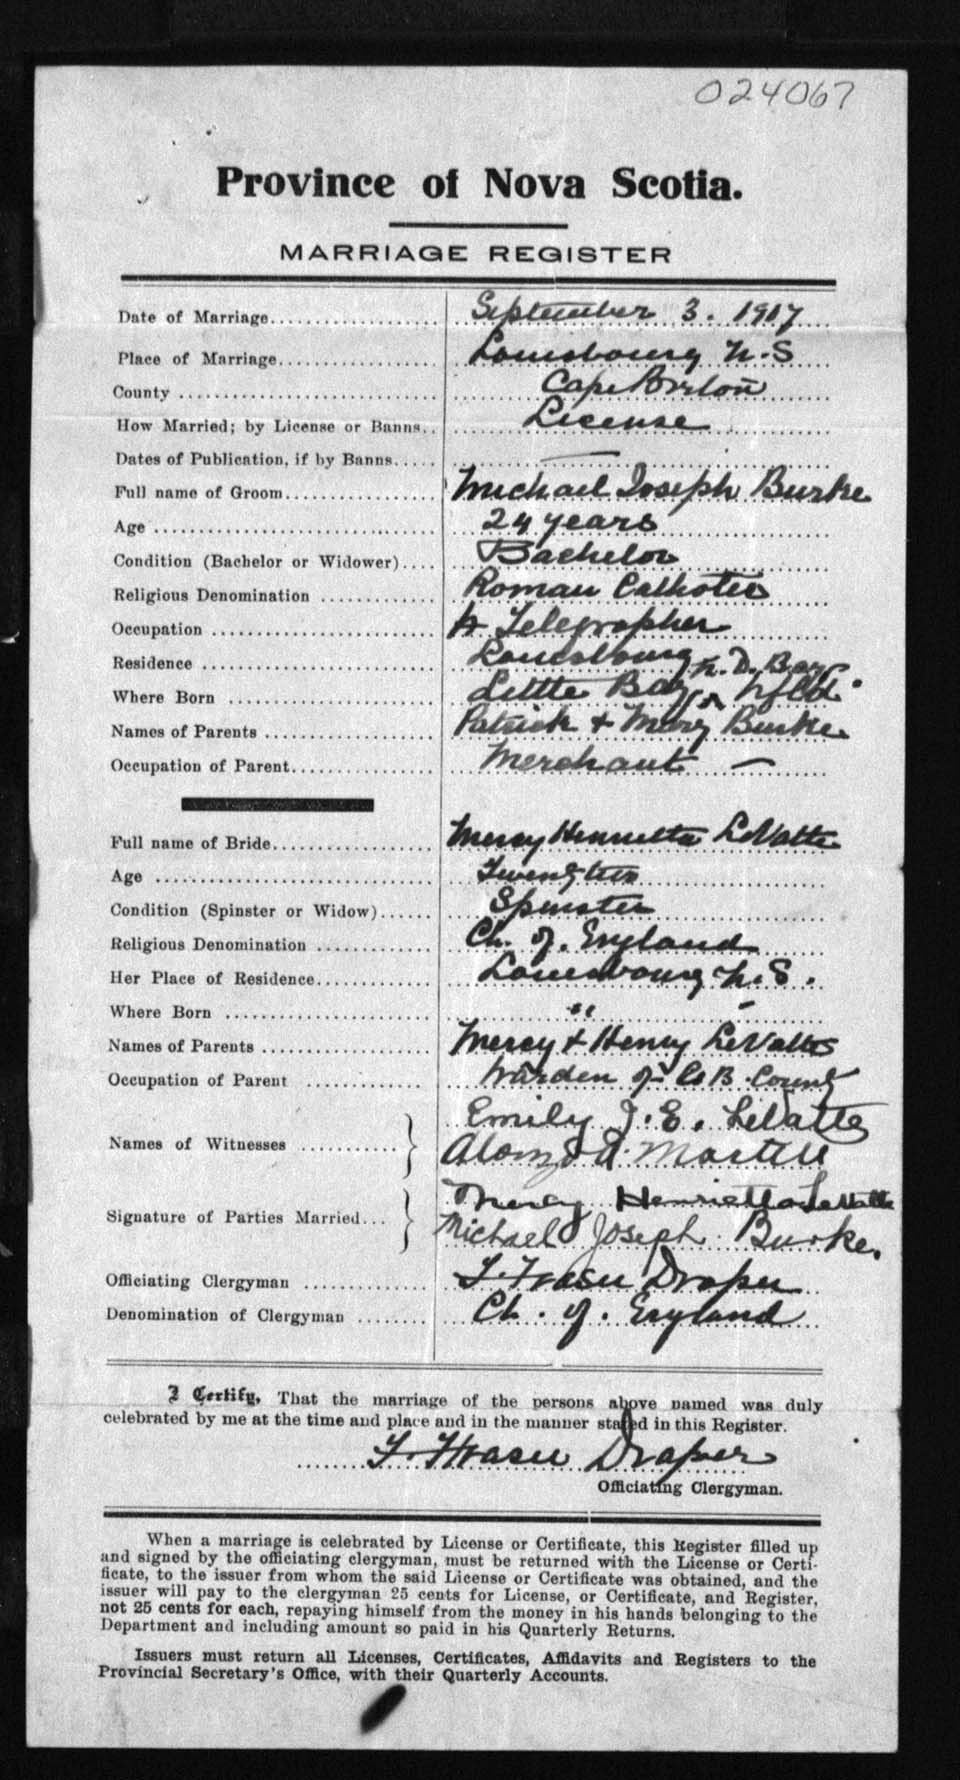 024067
Province of Nova Scotia.
MARRIAGE REGISTER
Date of Marriage September 3. 1917
Place of Marriage Louisbourg N.S
County Cape Breton
How Married; by License or Banns License
Dates of Publication, if by Banns —
Full name of Groom Michael Joseph Burke
Age 24 years
Condition (Bachelor or Widower) Bachelor
Religious Denomination Roman Catholic
Occupation Telegrapher
Residence Louisbourg
N. D. Bay
Where Born Little Bay, Nfld.
Names of Parents Patrick + Mary Burke
Occupation of Parent Merchant —
Full name of Bride Mercy Henrietta LeVatte
Age
Condition (Spinster or Widow) Spinster
Religious Denomination Ch. of. England
Her Place of Residence Louisbourg N.S.
Where Born " "
Names of Parents Mercy + Henry LeVatte
Occupation of Parent Warden of C B County
Names of Witnesses Emily J. E. LeVatte
Alonzo A. Martell
Signature of Parties Married Mercy Henrietta LeVatte
Michael Joseph Burke.
Officiating Clergyman T. Fraser Draper
Denomination of Clergyman Ch. of. England
I Certify, That the marriage of the persons above named was duly
celebrated by me at the time and place and in the manner stated in this Register.
T. Fraser Draper
Officiating Clergyman.
When a marriage is celebrated by License or Certificate, this Register filled up
and signed by the officiating clergyman, must be returned with the License or Certi-
ficate, to the issuer from whom the said License or Certificate was obtained, and the
issuer will pay to the clergyman 25 cents for License, or Certificate, and Register,
not 25 cents for each, repaying himself from the money in his hands belonging to the
Department and including amount so paid in his Quarterly Returns.
Issuers must return all Licenses, Certificates, Affidavits and Registers to the
Provincial Secretary's Office, with their Quarterly Accounts.